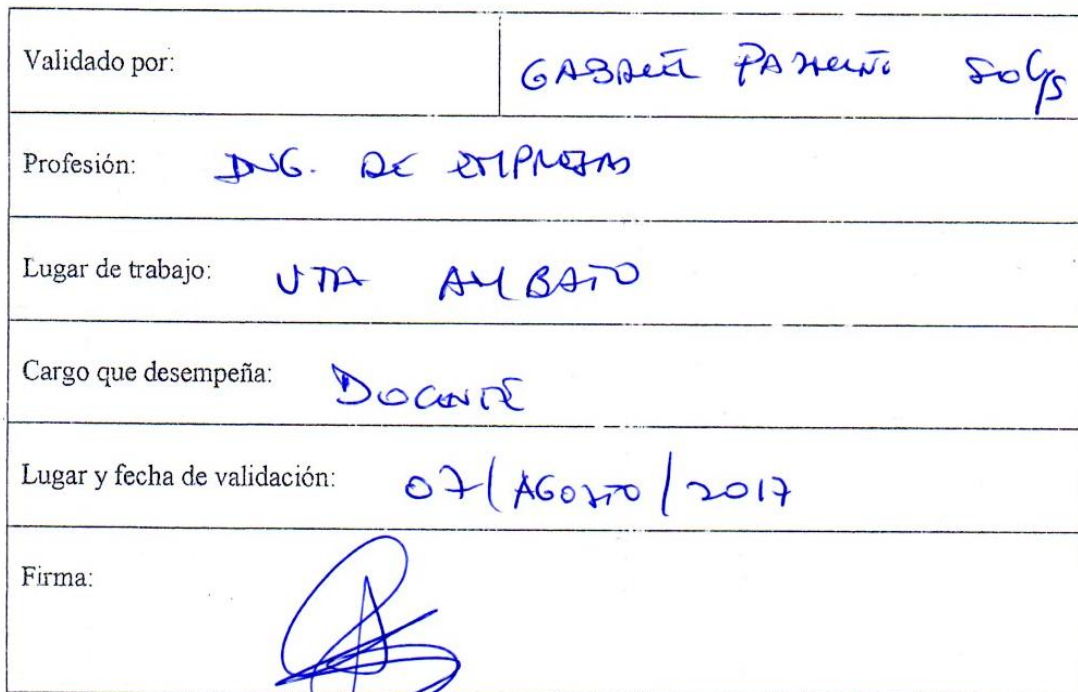 Validado por: GABRIEL PAZMIÑO
Profesión: ING. DE EMPRESAS
Lugar de trabajo: UTA AMBATO
Cargo que desempeña: DOCENTE
Lugar y fecha de validación: 07/AGOSTO/2017
Firma: